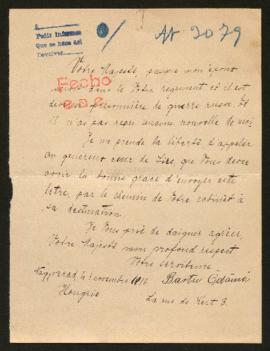 Pedir informes
Que se hace así
Devolver
At 2079
Fecho
Votre Majesté, pauvre mon époux
dans le Votre regiment et il est
devenu prisonnière de guerre russe. Et
il n'ai pas reçu aucune nouvelle de moi.
Je me prende la liberté d'appeler
au généreux coeur de Sire, que Vous devez
avoir la bonne grace d'envoyer cette
lettre, par le chemin de Votre cabinet à
sa destination.
Je Vous prie de daigner agréer,
Votre Majesté mon profond respect
Votre servitrice
novembre 1916
Hongrie
La rue de 3.